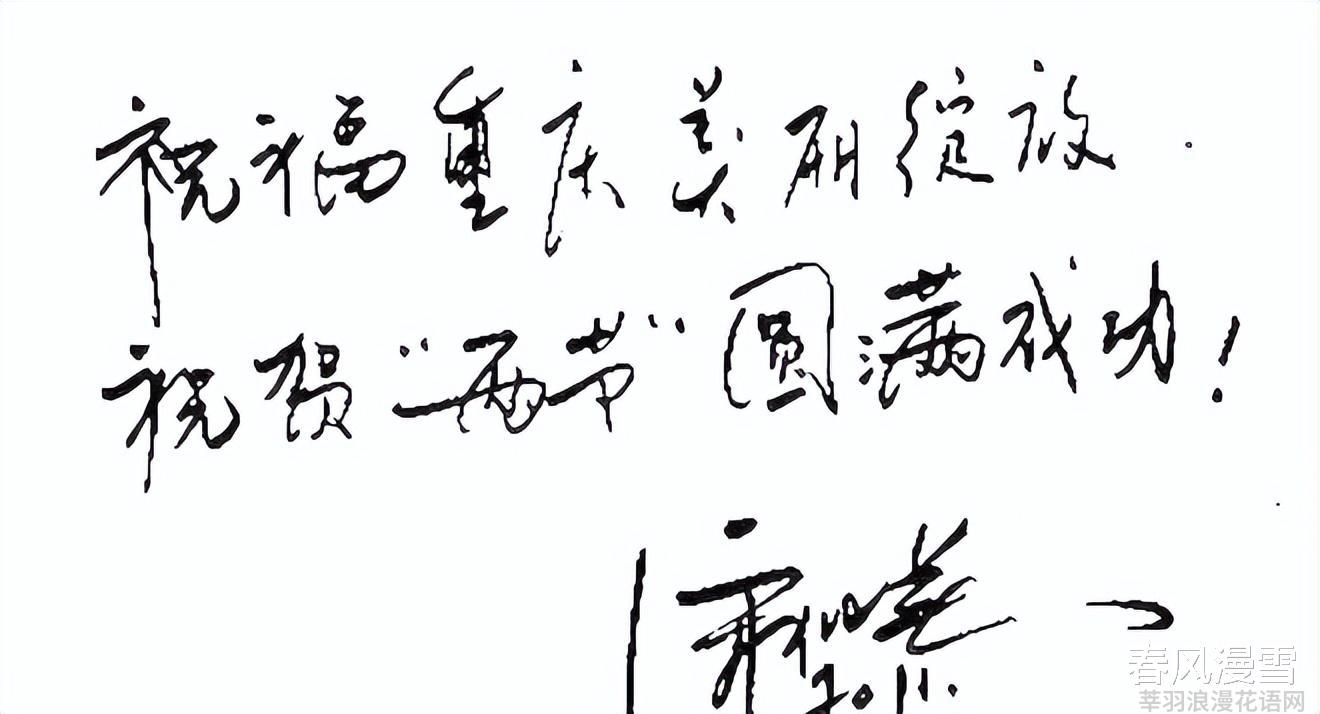 祝福重庆美丽绽放.
祝贺“两节”圆满成功！
2011.
春风漫雪
莘羽浪漫花语网